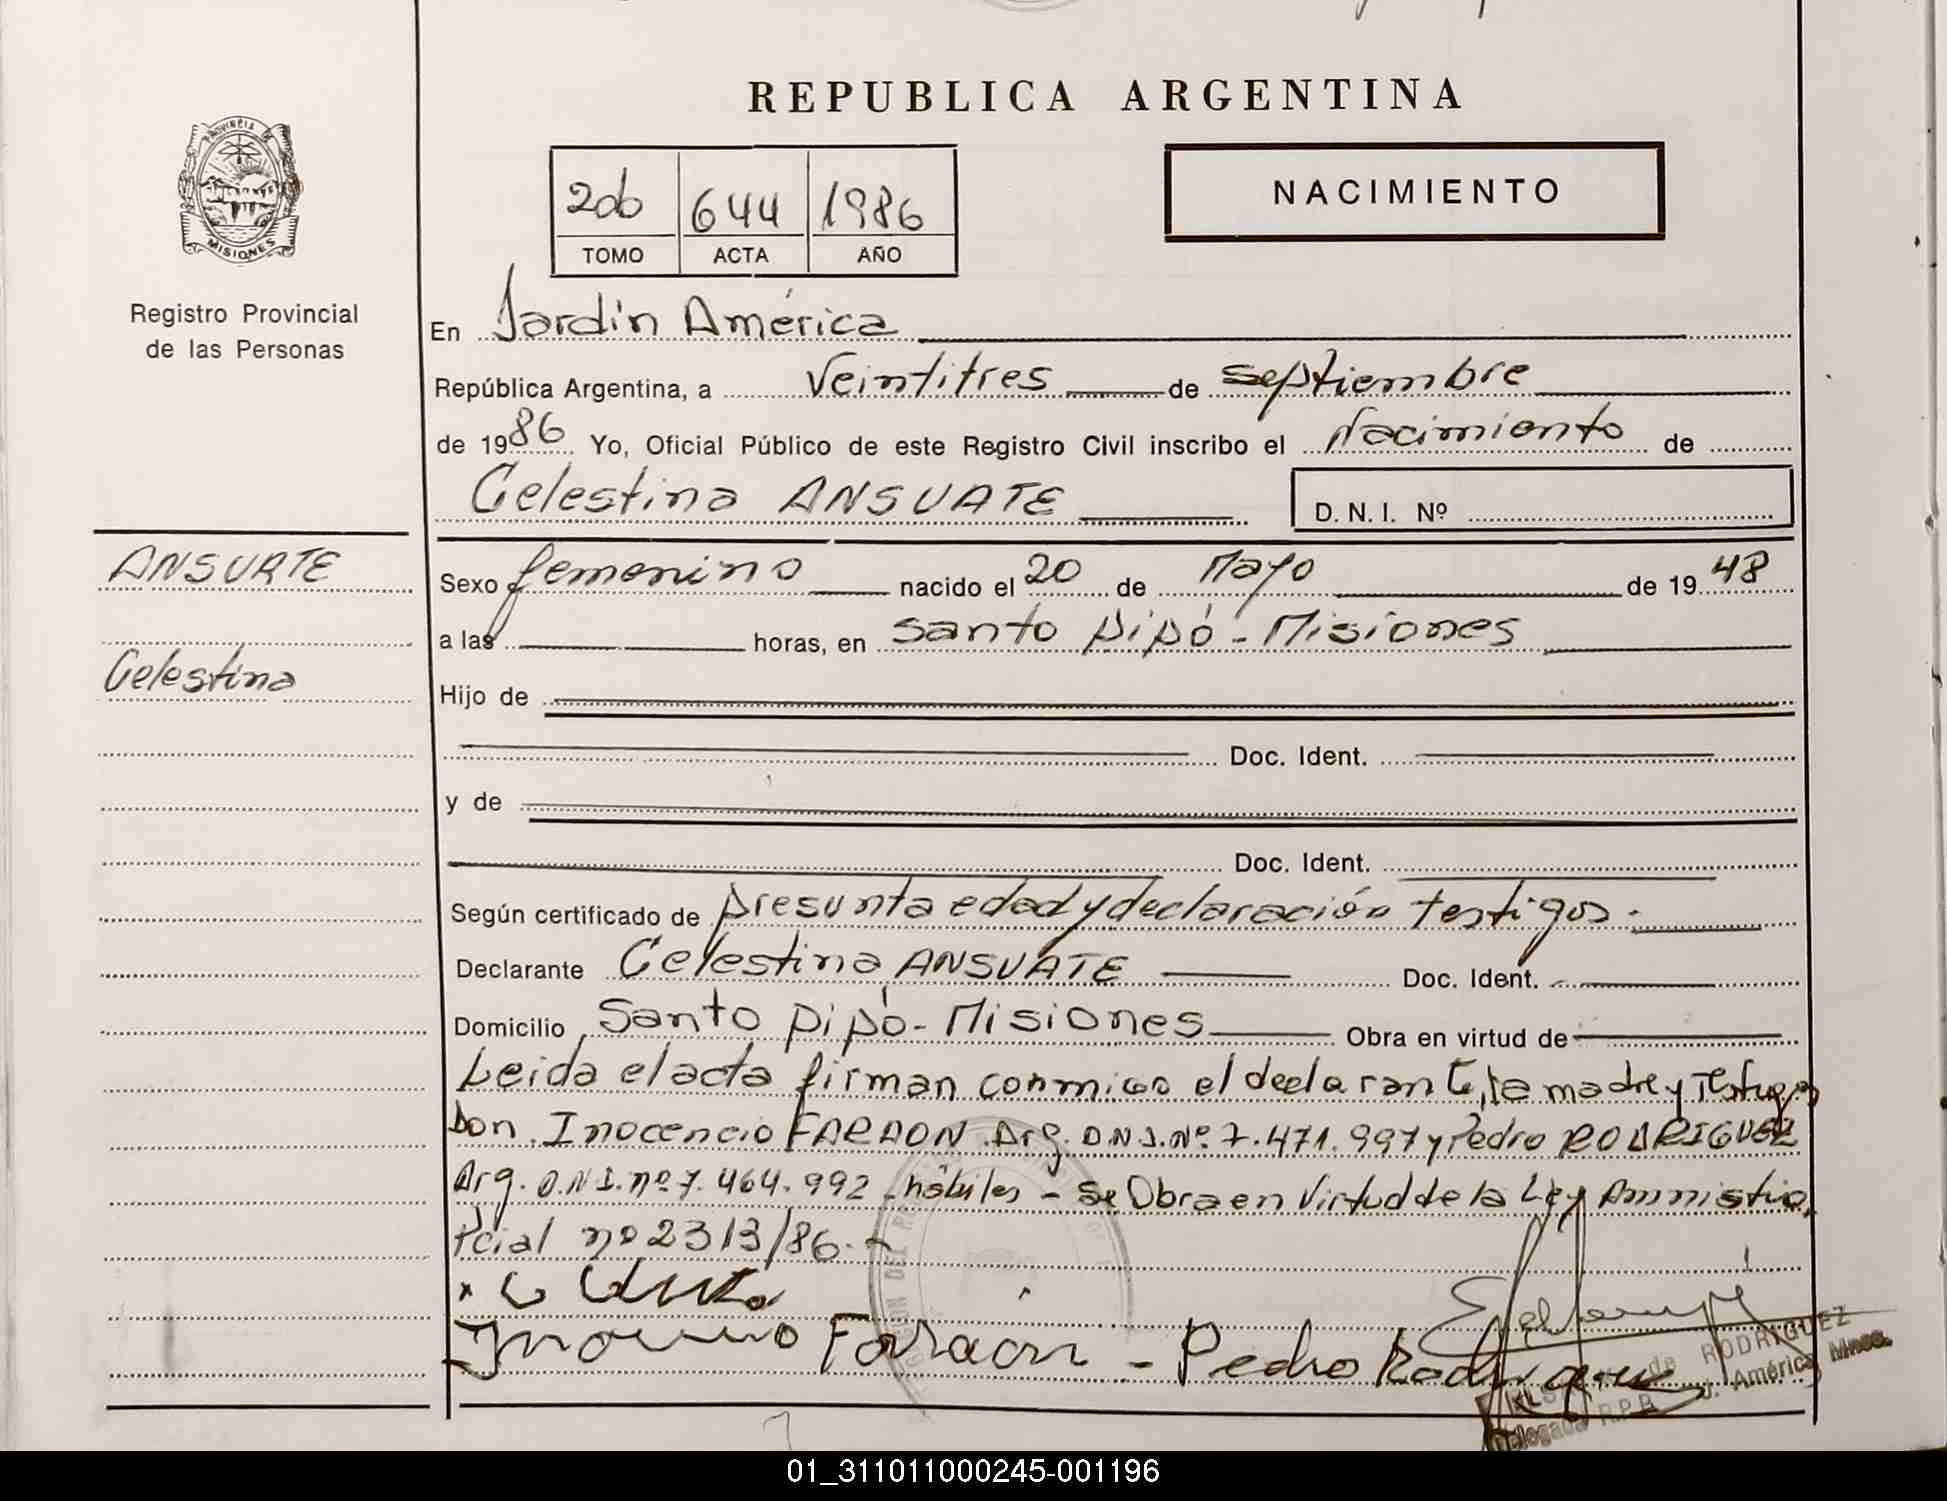 REPUBLICA ARGENTINA
PROVINCIA DE
MISIONES
Registro Provincial
de las Personas
2do 644 1986
TOMO ACTA AÑO
NACIMIENTO
En Jardín América
República Argentina, a veintitres de septiembre
de 1986 Yo, Oficial Público de este Registro Civil inscribo el Nacimiento de
Celestina ANSUATE D. N. I. Nº
ANSUATE
Celestina
Sexo femenino nacido el 20 de Mayo de 1948
a las horas, en Santo Pipó - Misiones
Hijo de
Doc. Ident.
y de
Doc. Ident.
Según certificado de presunta edad y declaración testigos.
Declarante Celestina ANSUATE Doc. Ident.
Domicilio Santo Pipó - Misiones Obra en virtud de
Leida el acta firman conmigo el declarante, la madre y Testigos
Don Inocencio FARAON Arg. D.N.I. Nº 7.471.997 y Pedro RODRIGUEZ
Arg. D.N.I. nº 7.464.992 - hábiles - Se Obra en Virtud de la Ley Amnistia
Pcial nº 2313/86.-
Faraon - Pedro Rodriguez
de RODRIGUEZ
Delegada R.P.P. J. América Mnes.
01_311011000245-001196